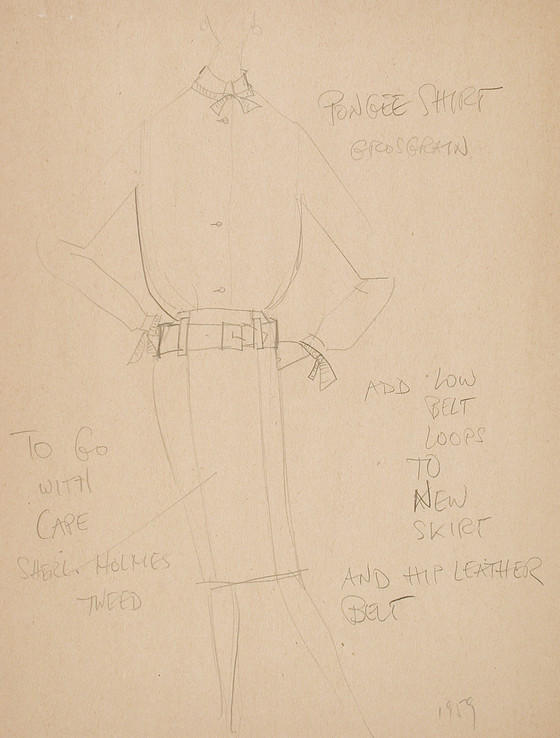 PONGEE SHIRT
GROSGRAIN
ADD LOW
BELT
LOOPS
TO
NEW
SKIRT
AND HIP LEATHER
BELT
TO GO
WITH
CAPE
SHERL. HOLMES
TWEED
1959